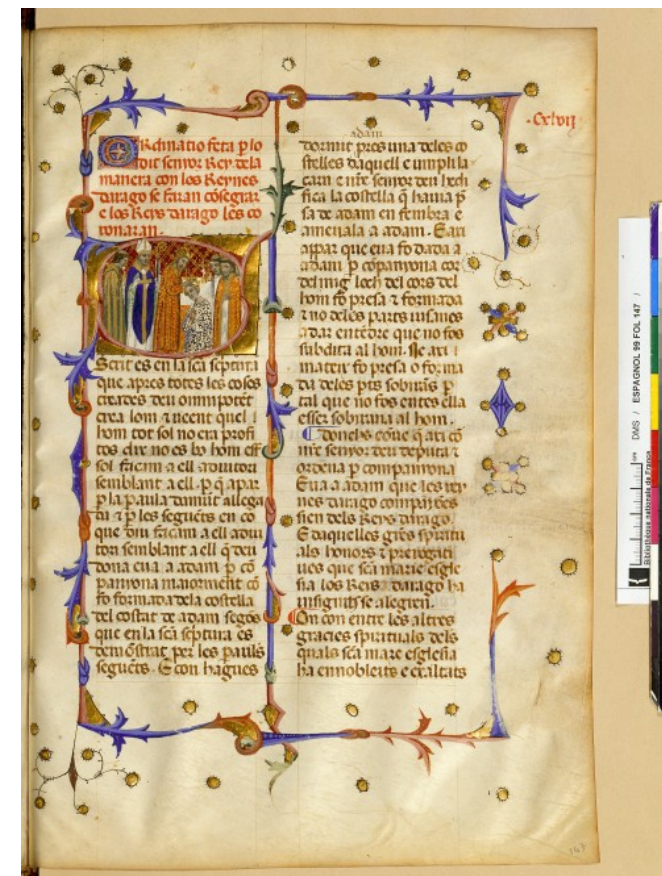 Ordinatio feta p lo
dit senyor Rey dela
manera con los Reynes
darago se faran cōsegrar
e los Reys darago les co
ronaran.
Scrit es en la scā scptura
que apres totes les coses
creades deu omnipotēt
crea lom ⁊ veent quel
hom tot sol no era profi
tos dix no es bo hom esser
sol facam a ell aiutori
semblant a ell. p q̄ apar
p la paula damūt allega
da ⁊ p les seguēts en co
que diu facam a ell aiu
tori semblant a ell q̄ deu
dona eua a adam p cō
panyona maiorment cō
fo formada dela costella
del costat de adam segōs
que en la scā scptura es
demōstrat per les pauls
seguēts. E con hagues
adam
dormit pres una deles co
stelles daquell e umpli la
carn e nr̄e senyor deu hedi
fica la costella q̄ hauia p
sa de adam en fembra e
amenala a adam. E axi
appar que eua fo dada a
adam p cōpanyona cor
del mig loch del cors del
hom fo presa ⁊ formada
⁊ no deles parts iusanes
a dar entēdre que no fos
subdita al hom. Ne axi
mateix fo presa o forma
da deles pts sobiranes p
tal que no fos entes ella
esser sobirana al hom.
Donchs coue q̄ axi cō
nr̄e senyor deu deputa ⁊
ordena p companyona
Eua a adam que les rey
nes darago companyōes
sien dels Reys darago.
E daquelles gr̄es spiritu
als honors ⁊ prerogati
ues que scā mare esgle
sia los Reys darago ha
insignits se alegren.
On con entre les altres
gracies spirituals dels
quals scā mare esglesia
ha ennobleits e exaltats
.Cxlvij
147
DMS / ESPAGNOL 99 FOL 147 /
Bibliothèque nationale de France